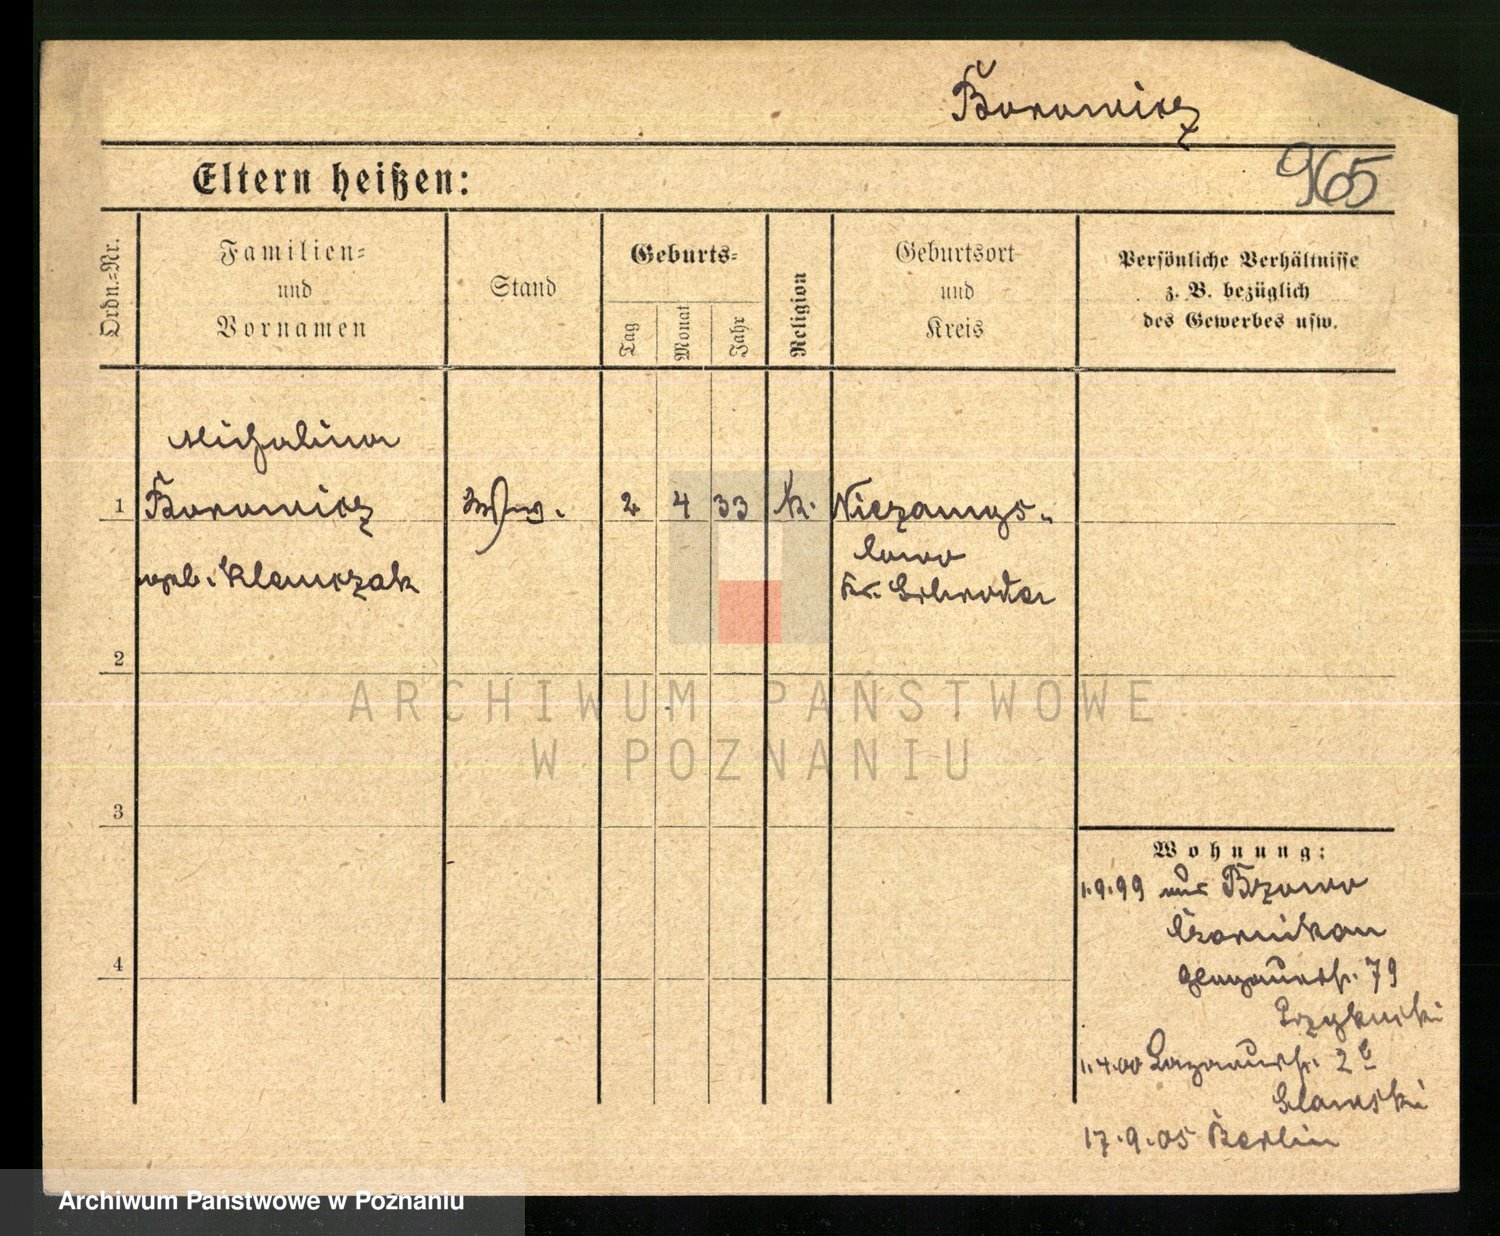 Borowicz
965
Eltern heißen:
Ordn.-Nr.
Familien-
und
Vornamen
Stand
Geburts-
Tag
Monat
Jahr
Religion
Geburtsort
und
Kreis
Persönliche Verhältnisse
z. B. bezüglich
des Gewerbes usw.
Michalina
1 Borowicz 2 4 33 k. Niezamys-
lowo
geb. Klemczak Kr. Schroda
2
3
4
Wohnung:
1.9.99 aus Brzowo
Czarnikau
Glogauerstr. 79
1.4.00 Lazarusstr. 2
17.9.05 Berlin
ARCHIWUM PAŃSTWOWE
W POZNANIU
Archiwum Państwowe w Poznaniu